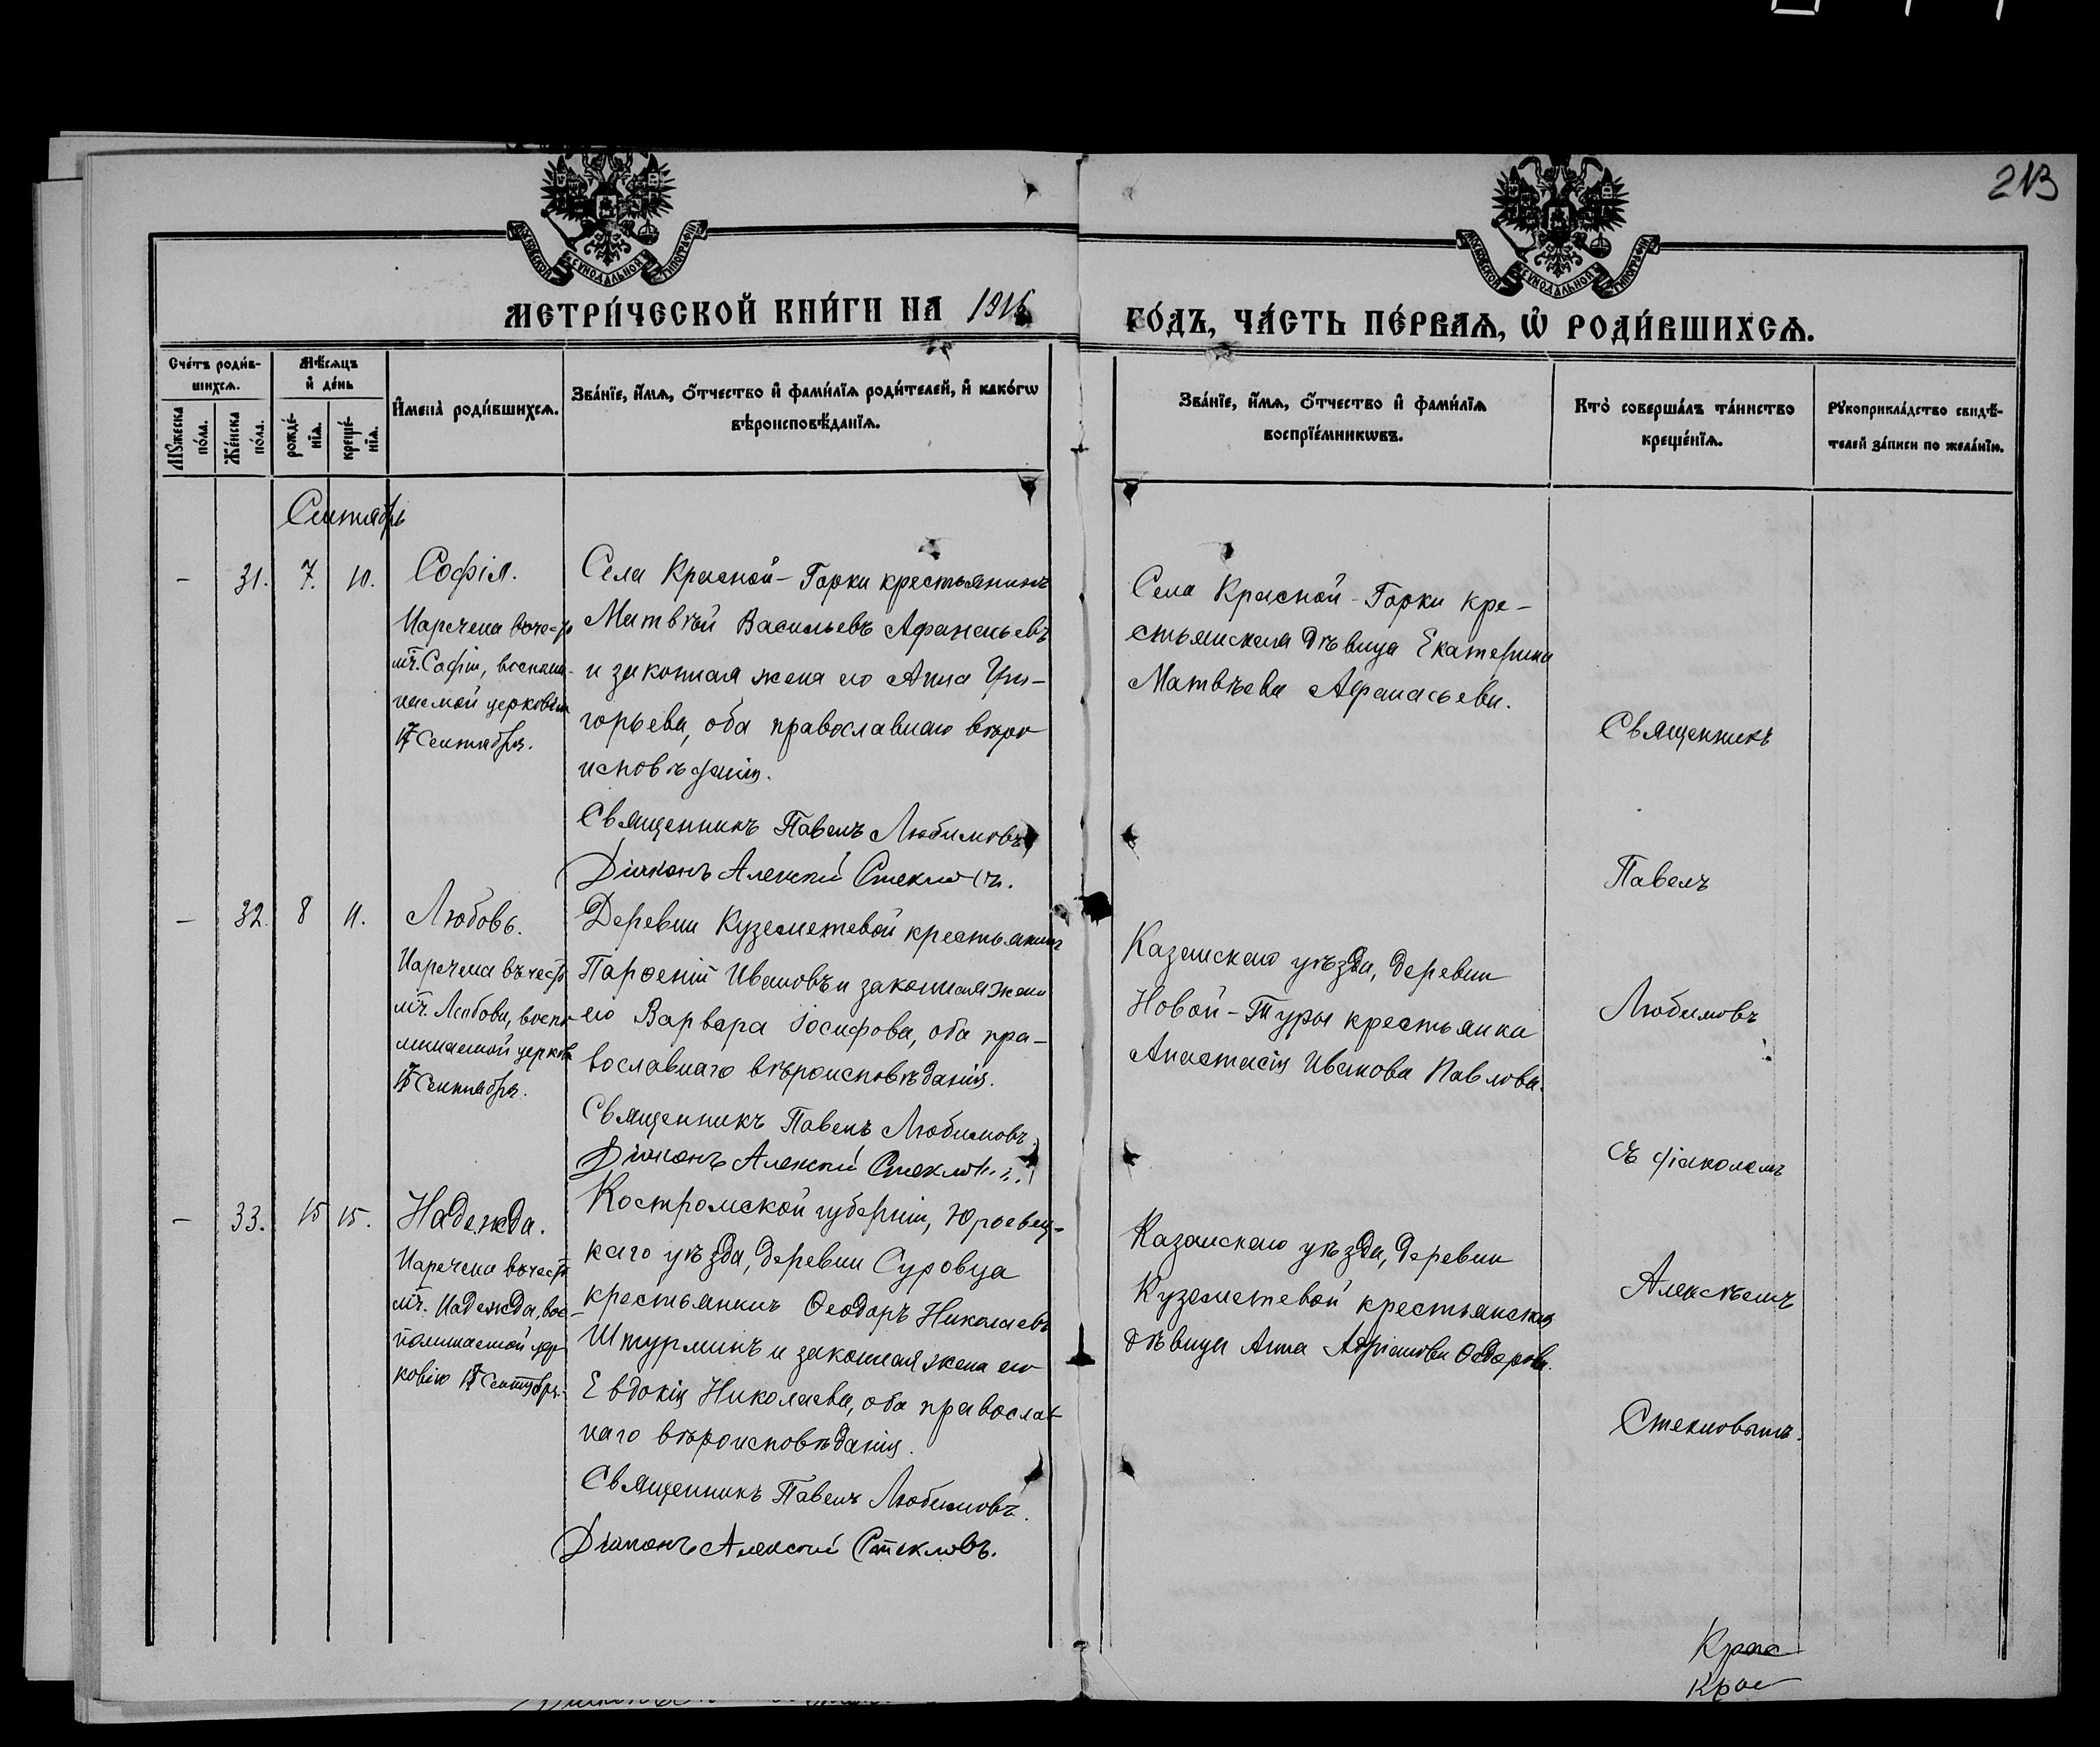 213
МОСКОВСКОЙ СѴНОДАЛЬНОЙ ТИПОГРАФІИ
МОСКОВСКОЙ СѴНОДАЛЬНОЙ ТИПОГРАФІИ
МЕТРИ́ЧЕСКОЙ КНИ́ГИ НА 1916
ГО́ДЪ, ЧА́СТЬ ПЕ́РВАѦ, Ѡ҆ РОДИ́ВШИХСѦ.
Сче́тъ роди́в-
шихсѧ.
Мѣ́сѧцъ
и҆ де́нь
Мꙋ́жеска
по́ла.
Же́нска
по́ла.
рожде́-
нїѧ.
креще́-
нїѧ.
И҆мена̀ роди́вшихсѧ.
Зва́нїе, и҆́мѧ, ѻ҆́тчество и҆ фами́лїѧ роди́телей, и҆ како́гѡ
вѣроисповѣ́данїѧ.
Зва́нїе, и҆́мѧ, ѻ҆́тчество и҆ фами́лїѧ
воспрїе́мникѡвъ.
Кто̀ соверша́лъ та́инство
креще́нїѧ.
Рꙋкоприкла́дство свидѣ́-
телей за́писи по жела́нїю.
Сентябрь
- 31. 7. 10. Софія.
Наречена въ честь
мч. Софіи, воспоми-
наемой церковію
17 Сентября.
Села Красной-Горки крестьянинъ
Матвѣй Васильевъ Афанасьевъ
и законная жена его Анна Гри-
горьева, оба православнаго вѣро
исповѣданія.
Священникъ Павелъ Любимовъ
Діаконъ Алексій Стекловъ.
Села Красной-Горки кре-
стьянская дѣвица Екатерина
Матвѣева Афанасьева.
- 32. 8 11. Любовь.
Наречена въ честь
мч. Любови, воспо-
минаемой церковію
17 Сентября.
Деревни Куземетевой крестьянинъ
Парѳеній Ивановъ и законная жена
его Варвара Іосифова, оба пра-
вославнаго вѣроисповѣданія.
Священникъ Павелъ Любимовъ.
Діаконъ Алексій Стекловъ.
Казанскаго уѣзда, деревни
Новой-Туры крестьянка
Анастасія Иванова Павлова.
- 33. 15 15. Надежда.
Наречена въ честь
мч. Надежда, вос-
поминаемой цер
ковію 17 Сентября.
Костромской губерніи, Юрьевец-
каго уѣзда, деревни Суровца
крестьянинъ Ѳеодоръ Николаевъ
Штурминъ и законная жена его
Евдокія Николаева, оба православ
наго вѣроисповѣданія.
Священникъ Павелъ Любимовъ.
Діаконъ Алексій Стекловъ.
Казанскаго уѣзда, деревни
Куземетевой крестьянская
дѣвица Анна Адріанова Ѳедорова.
Священникъ
Павелъ
Любимовъ
съ діакономъ
Алексѣемъ
Стекловымъ.